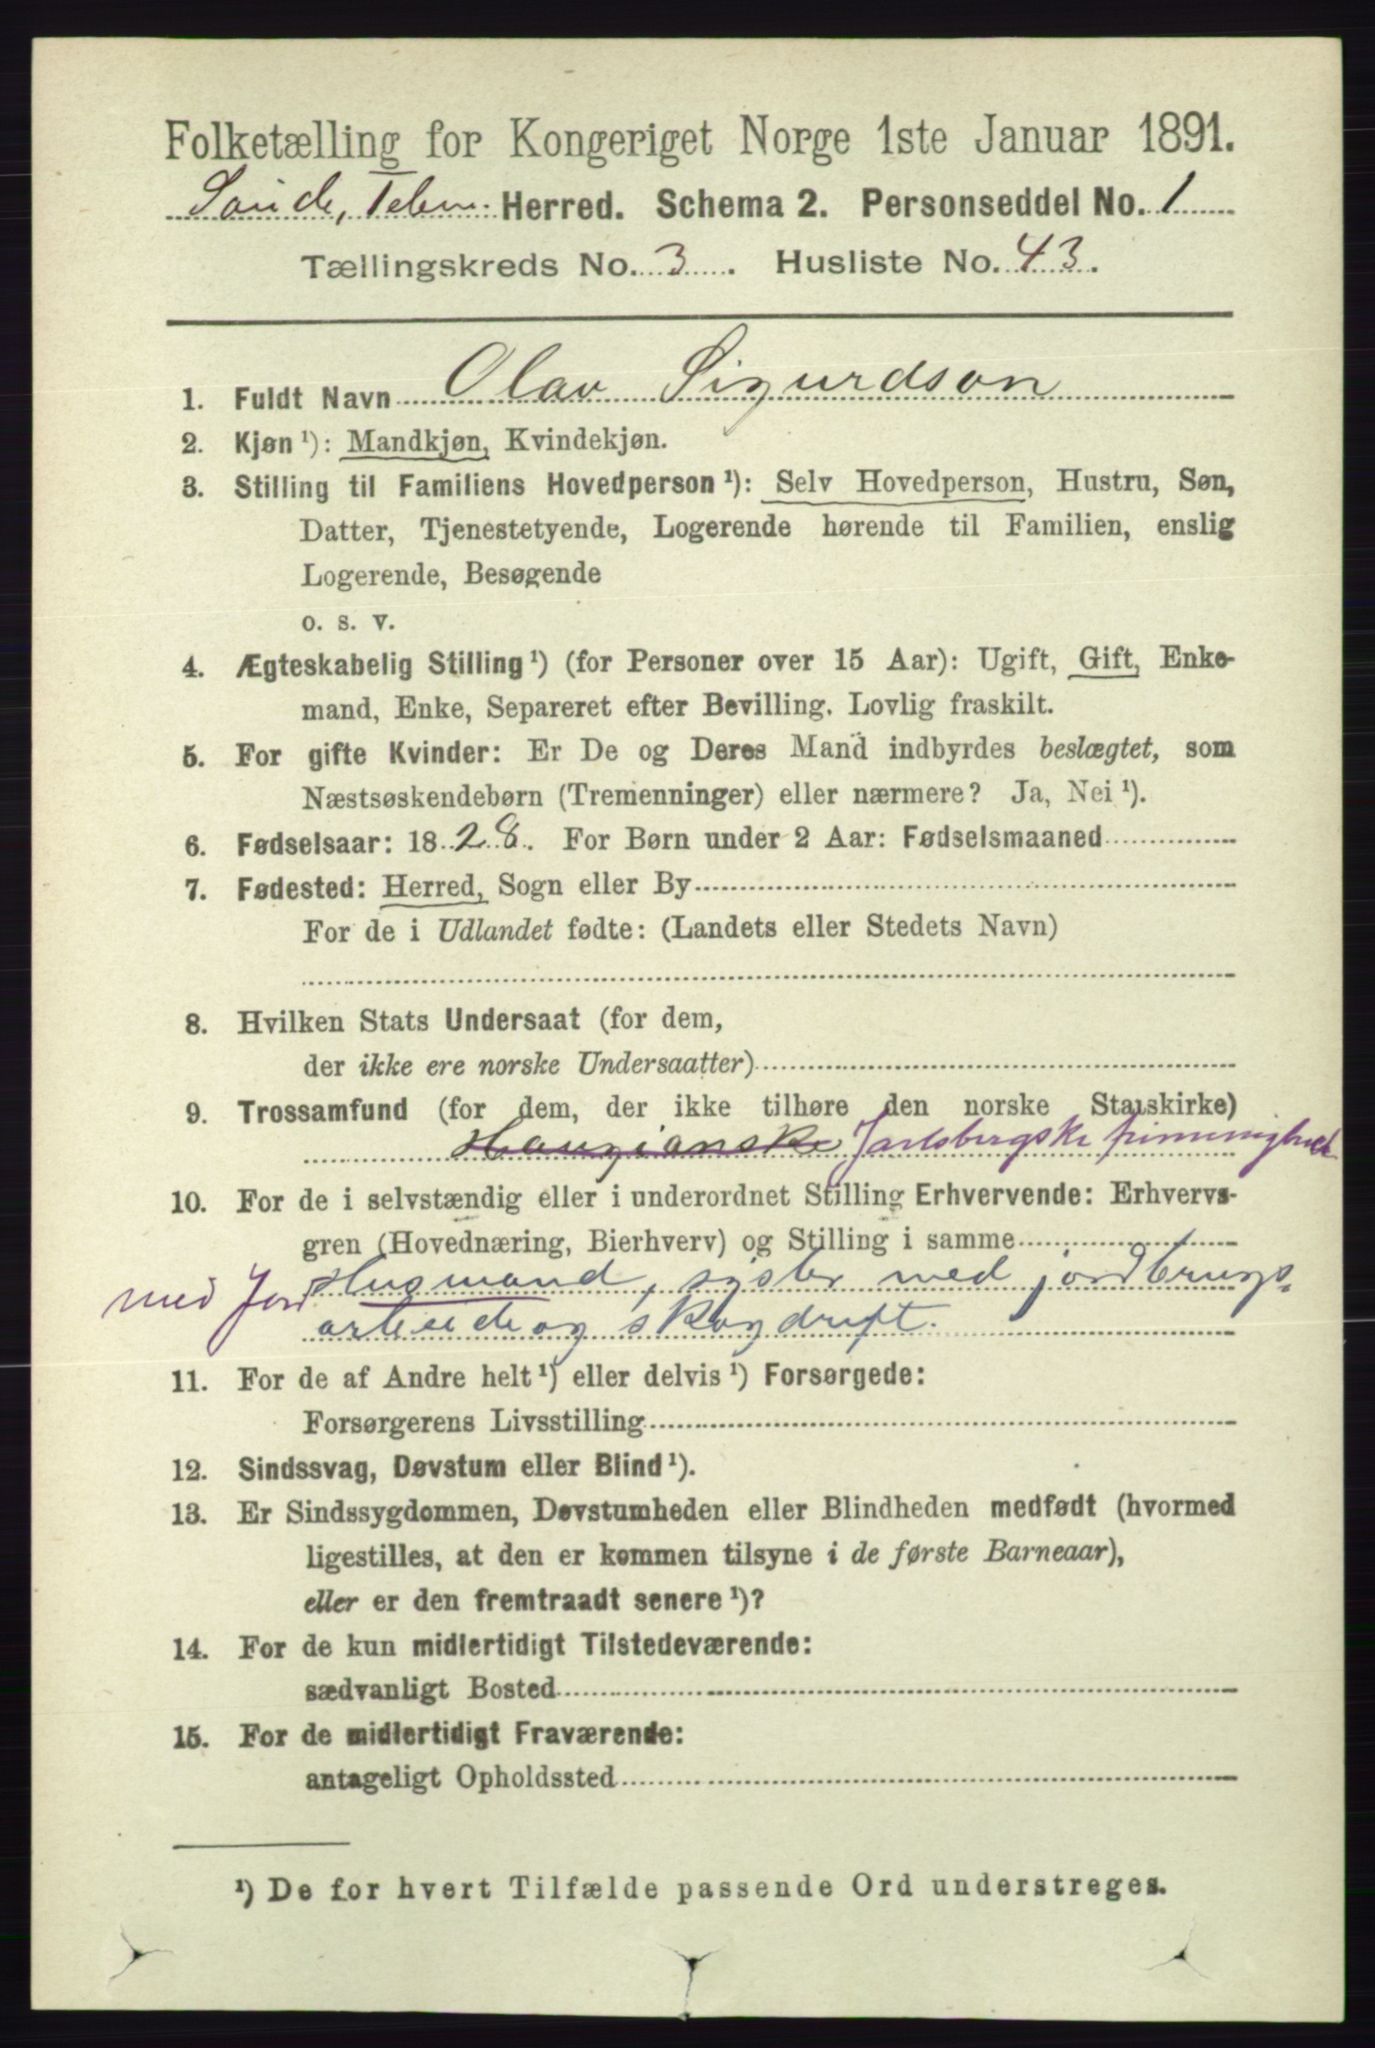 Folketælling for Kongeriget Norge 1ste Januar 1891.
Saude, Telem. Herred. Schema 2. Personseddel No. 1
Tællingskreds No. 3. Husliste No. 43.
1. Fuldt Navn Olav Sigurdson
2. Kjøn ¹): Mandkjøn, Kvindekjøn.
3. Stilling til Familiens Hovedperson ¹): Selv Hovedperson, Hustru, Søn,
Datter, Tjenestetyende, Logerende hørende til Familien, enslig
Logerende, Besøgende
o. s. v.
4. Ægteskabelig Stilling ¹) (for Personer over 15 Aar): Ugift, Gift, Enke-
mand, Enke, Separeret efter Bevilling. Lovlig fraskilt.
5. For gifte Kvinder: Er De og Deres Mand indbyrdes beslægtet, som
Næstsøskendebørn (Tremenninger) eller nærmere? Ja, Nei ¹).
6. Fødselsaar: 1828. For Børn under 2 Aar: Fødselsmaaned
7. Fødested: Herred, Sogn eller By
For de i Udlandet fødte: (Landets eller Stedets Navn)
8. Hvilken Stats Undersaat (for dem,
der ikke ere norske Undersaatter)
9. Trossamfund (for dem, der ikke tilhøre den norske Statskirke)
Haugianske Jarlsbergske frimenighed
10. For de i selvstændig eller i underordnet Stilling Erhvervende: Erhvervs-
gren (Hovednæring, Bierhverv) og Stilling i samme
med Jord Husmand, sysler med jordbrugs-
arbeide og skogdrift.
11. For de af Andre helt ¹) eller delvis ¹) Forsørgede:
Forsørgerens Livsstilling
12. Sindssvag, Døvstum eller Blind ¹).
13. Er Sindssygdommen, Døvstumheden eller Blindheden medfødt (hvormed
ligestilles, at den er kommen tilsyne i de første Barneaar),
eller er den fremtraadt senere ¹)?
14. For de kun midlertidigt Tilstedeværende:
sædvanligt Bosted
15. For de midlertidigt Fraværende:
antageligt Opholdssted
¹) De for hvert Tilfælde passende Ord understreges.